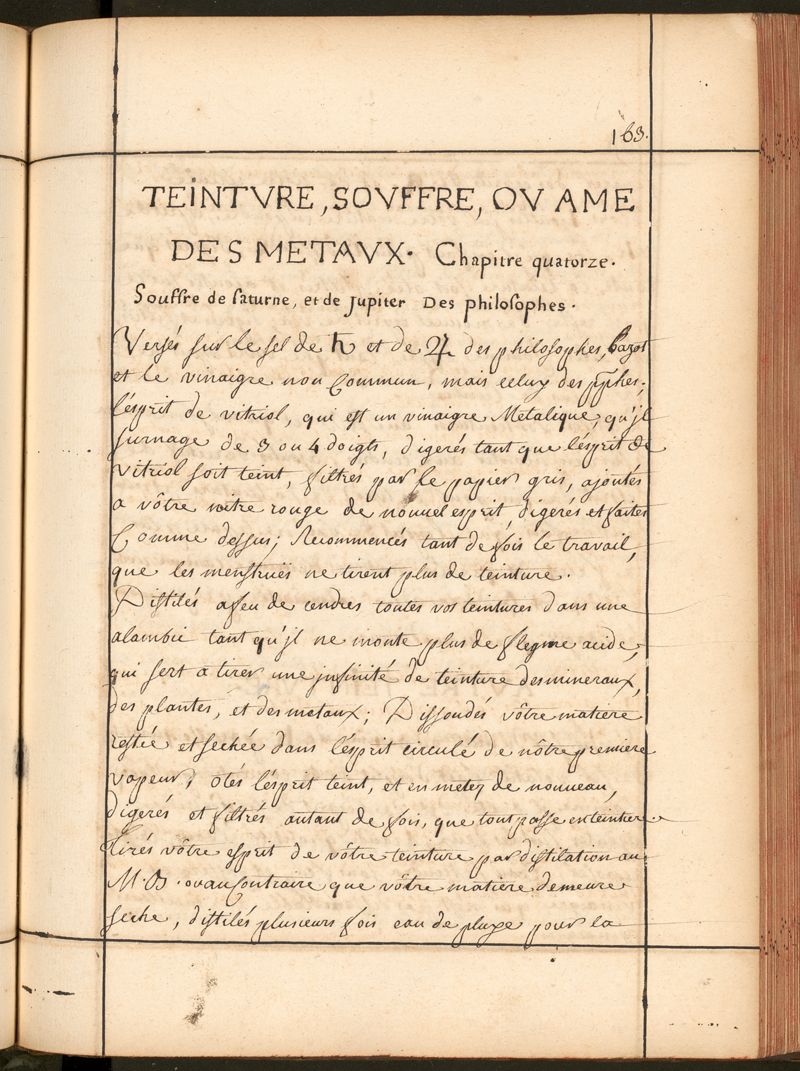 163.
TEINTVRE, SOVFFRE, OV AME
DES METAVX. Chapitre quatorze.
Souffre de saturne, et de Jupiter Des philosophes.
Versés sur le sel de ♄ et de ♃ des philosophes,
et le vinaigre non Commun, mais celuy des pphes;
l'ésprit de vitriol, qui est un vinaigre Metalique, qu'jl
surnage de 3 ou 4 doigts, digerés tant que l'ésprit de
vitriol soit teint, filtrés par le papier gris, ajoutés
a vôtre nitre rouge de nouuel esprit, digerés et faites
Comme dessus; Recommencés tant de fois le travail,
que les menstruës ne tirent plus de teinture.
Distilés a feu de cendres toutes vos teintures dans une
alambic tant qu'jl ne monte plus de flegme acide,
qui sert a tirer une jnfinité de teinture des mineraux,
des plantes, et des metaux; Dissoudés vôtre matiere
restée et sechée dans l'ésprit circulé de nôtre premiere
vapeur; otés l'ésprit teint, et en metez de nouueau,
digerés et filtrés autant de fois, que tout passe en teinture.
tirés vôtre esprit de vôtre teinture par distilation au
M.B. ou au Contraire que vôtre matiere demeure
seche, distilés plusieurs fois eau de pluye pour la